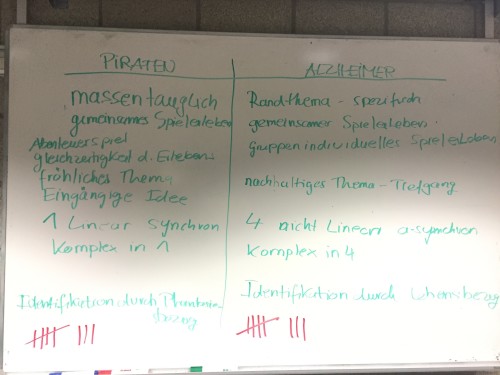 PIRATEN
massentauglich
gemeinsames Spielerleben
Abenteuerspiel
gleichzeitigkeit d. Erlebens
fröhliches Thema
Eingängige Idee
1 Linear Synchron
Komplex in 1
Identifikation durch
ALZHEIMER
Randthema - spezifisch
gemeinsames Spielerleben.
gruppenindividuelles Spielerleben
nachhaltiges Thema - Tiefgang
4 nicht Linear a-synchron
Komplex in 4
Identifikation durch Lebensbezug